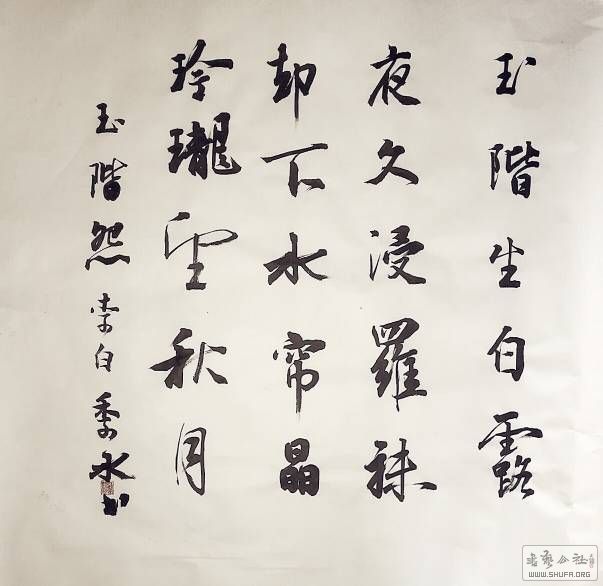 玉階生白露
夜久浸羅袜
却下水帘晶
玲瓏望秋月
玉階怨 李白 水书
书艺公社
WWW.SHUFA.ORG